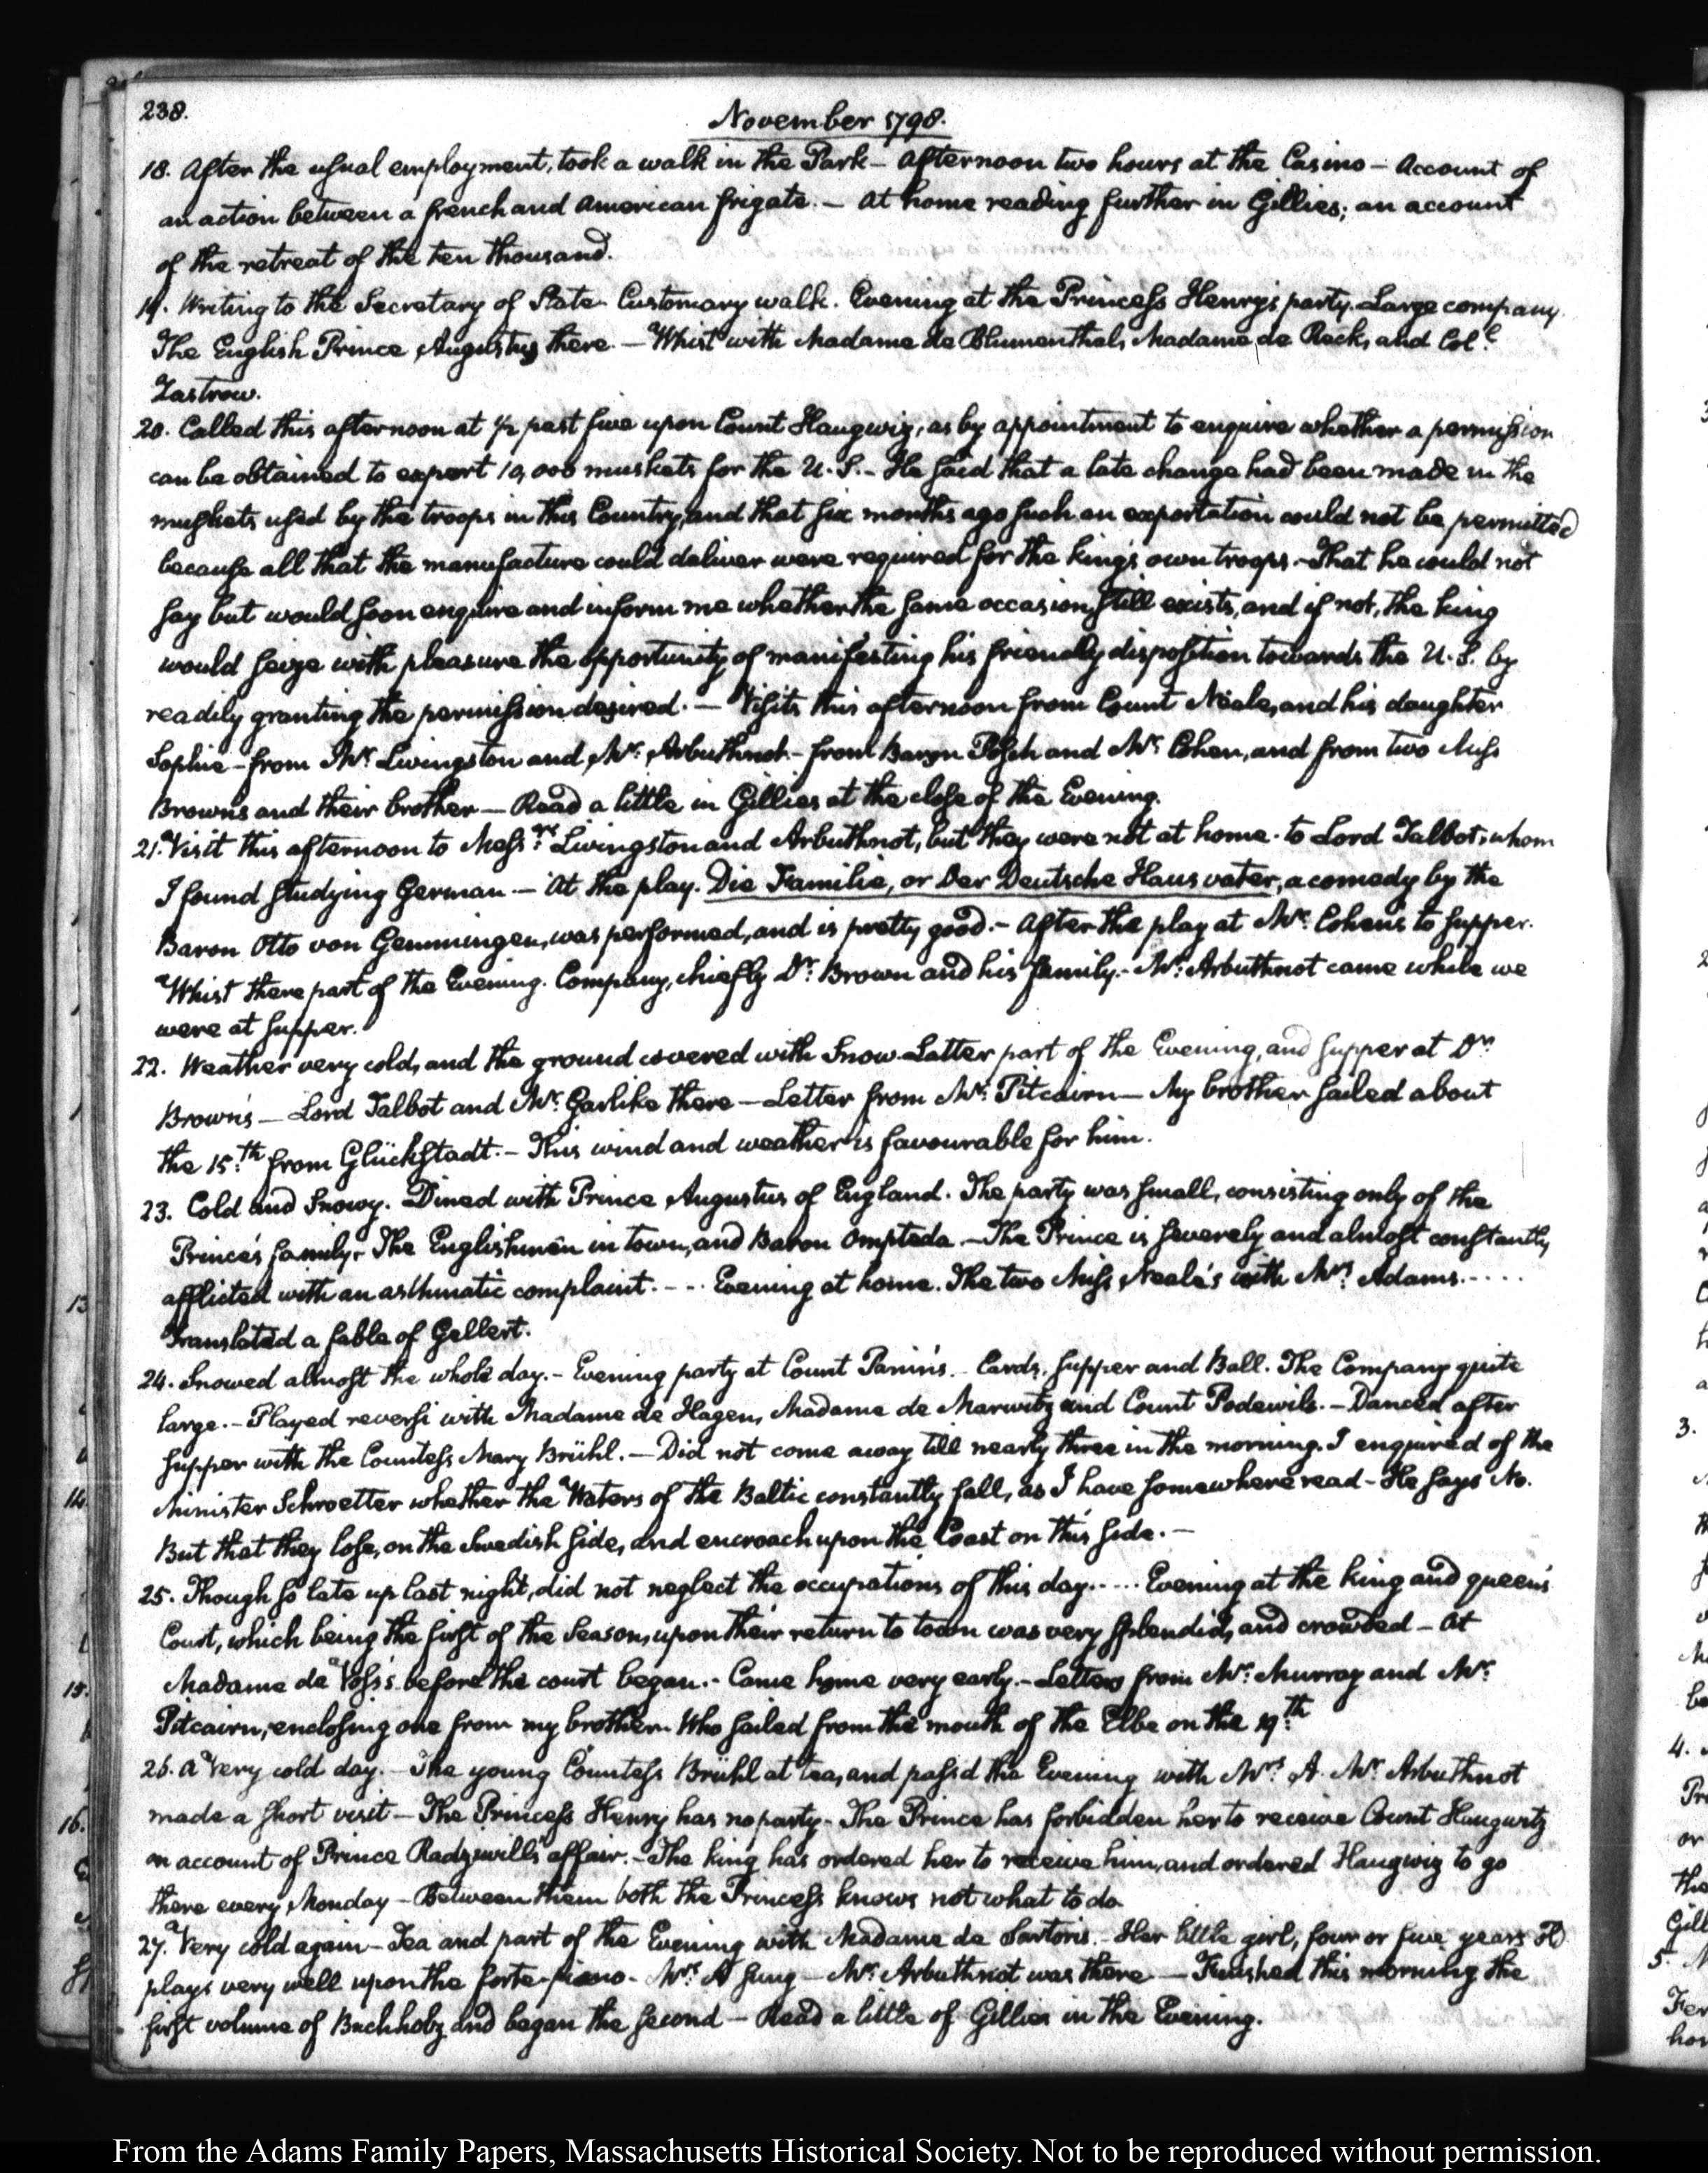 238.
November 1798.
18. After the usual employment, took a walk in the Park – Afternoon two hours at the Casino – Account of
an action between a french and American frigate. – At home reading further in Gillies; an account
of the retreat of the ten thousand.
19. Writing to the Secretary of State. Customary walk. Evening at the Princess Henry's party. Large company.
The English Prince Augustus there. – Whist with Madame de Blumenthal, Madame de Reck, and Col.l
Zastrow.
20. Called this afternoon at ½ past five upon Count Haugwiz, as by appointment to enquire whether a permission
can be obtained to export 10,000 muskets for the U.S. – He said that a late change had been made in the
muskets used by the troops in this Country, and that six months ago such an exportation could not be permitted
because all that the manufacture could deliver were required for the king's own troops. – That he could not
say but would soon enquire and inform me whether the same occasion still exists, and if not, the king
would seize with pleasure the opportunity of manifesting his friendly disposition towards the U.S. by
readily granting the permission desired. – Visits this afternoon from Count Neale, and his daughter
Sophie – from Mr. Livingston and Mr. Arbuthnot – from Baron Posch and Mr. Cohen, and from two Miss
Browns and their brother – Read a little in Gillies at the close of the Evening.
21. Visit this afternoon to Messrs. Livingston and Arbuthnot, but they were not at home. to Lord Talbot, whom
I found studying German – At the play. Die Familie, or Der Deutsche Hausvater, a comedy by the
Baron Otto von Gemmingen, was performed, and is pretty good. – After the play at Mr. Cohen's to supper.
Whist there part of the Evening. Company, chiefly Dr. Brown and his family. – Mr. Arbuthnot came while we
were at supper.
22. Weather very cold, and the ground covered with Snow. Latter part of the Evening, and supper at Dr.
Brown's – Lord Talbot and Mr. Garlike there – Letter from Mr. Pitcairn – My brother sailed about
the 15.th from Glückstadt. – This wind and weather is favourable for him.
23. Cold and Snowy. Dined with Prince Augustus of England. The party was small, consisting only of the
Prince's family, The Englishmen in town, and Baron Ompteda. – The Prince is severely and almost constantly
afflicted with an asthmatic complaint. - - - Evening at home. The two Miss Neale's with Mrs. Adams. . . . . .
Translated a fable of Gellert.
24. Snowed almost the whole day. – Evening party at Count Panin's. – Cards, supper and Ball. The Company quite
large. – Played reversi with Madame de Hagen, Madame de Marwitz and Count Podewils. – Danced after
supper with the Countess Mary Brühl. – Did not come away till nearly three in the morning. I enquired of the
Minister Schroetter whether the Waters of the Baltic constantly fall, as I have somewhere read – He says No.
But that they lose, on the Swedish side, and encroach upon the Coast on this side. –
25. Though so late up last night, did not neglect the occupations of this day. . . . . Evening at the king and queen's
Court, which being the first of the Season, upon their return to town was very splendid, and crowded – At
Madame de Voss's before the court began. – Came home very early. – Letters from Mr. Murray and Mr.
Pitcairn, enclosing one from my brother. Who sailed from the mouth of the Elbe on the 19.th
26. A very cold day. – The young Countess Brühl at tea, and pass'd the Evening with Mrs. A. Mr. Arbuthnot
made a short visit – The Princess Henry has no party – The Prince has forbidden her to receive Count Haugwitz
on account of Prince Radzivill's affair. – The king has ordered her to receive him, and ordered Haugwiz to go
there every Monday – Between them both the Princess knows not what to do.
27. Very cold again – Tea and part of the Evening with Madame de Sartoris. – Her little girl, four or five years old
plays very well upon the forte-piano. Mrs. A sung – Mr. Arbuthnot was there – Finished this morning the
first volume of Buchholz and began the second – Read a little of Gillies in the Evening.
From the Adams Family Papers, Massachusetts Historical Society. Not to be reproduced without permission.